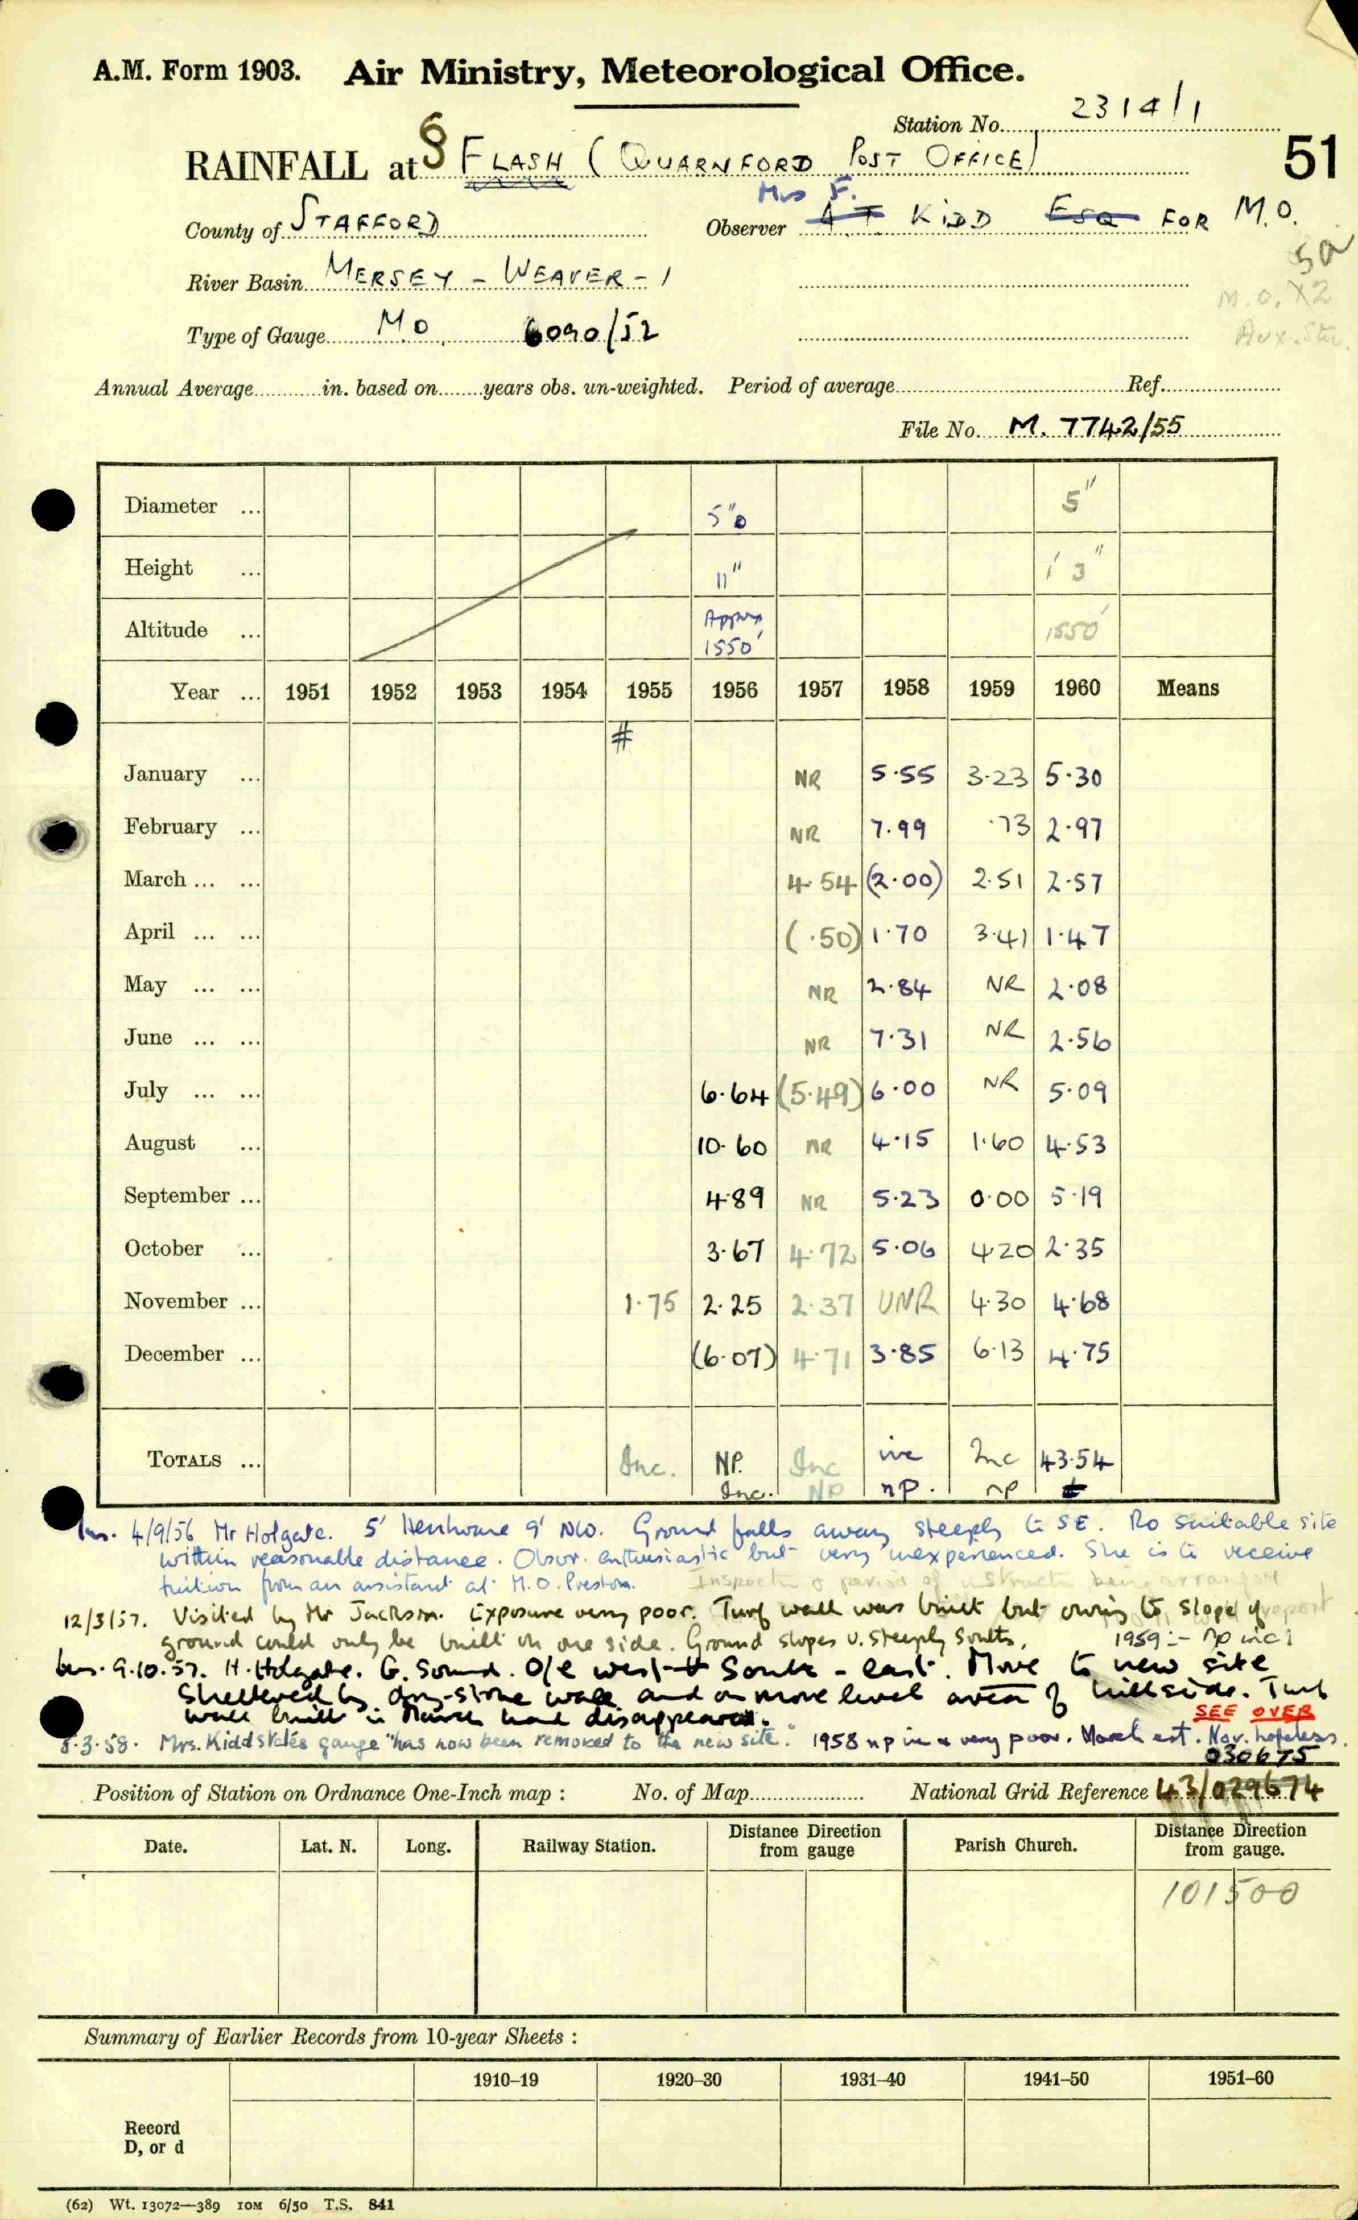 A.M. Form 1903. Air Ministry, Meteorological Office.
Station No. 2314/1
RAINFALL at § FLASH (QUARNFORD POST OFFICE) 51
Mrs F.
County of STAFFORD Observer A T KIDD ESQ FOR M.O.
River Basin MERSEY - WEAVER - 1
M.O. X2
Type of Gauge M.O. 6090/52 Aux. Stn.
Annual Average in. based on years obs. un-weighted. Period of average Ref.
File No. M. 7742/55
Diameter ... 5" 5"
Height ... 11" 1' 3"
Altitude ... Approx 1550' 1550'
Year ... 1951 1952 1953 1954 1955 1956 1957 1958 1959 1960 Means
#
January ... NR 5.55 3.23 5.30
February ... NR 7.99 .73 2.97
March ... ... 4.54 (2.00) 2.51 2.57
April ... ... (.50) 1.70 3.41 1.47
May ... ... NR 2.84 NR 2.08
June ... ... NR 7.31 NR 2.56
July ... ... 6.64 (5.49) 6.00 NR 5.09
August ... 10.60 NR 4.15 1.60 4.53
September ... 4.89 NR 5.23 0.00 5.19
October ... 3.67 4.72 5.06 4.20 2.35
November ... 1.75 2.25 2.37 UNR 4.30 4.68
December ... (6.07) 4.71 3.85 6.13 4.75
TOTALS ... Inc. NP. Inc inc Inc 43.54
Inc. NP np. np t
Ins. 4/9/56 Mr Holgate. 5' Henhouse 9' NW. Ground falls away steeply to SE. No suitable site
within reasonable distance. Obsvr. enthusiastic but very inexperienced. She is to receive
tuition from an assistant at M.O. Preston. Inspector & period of instruction being arranged
12/3/57. Visited by Mr Jackson. Exposure very poor. Turf wall was built but owing to slope of
ground could only be built on one side. Ground slopes v. steeply South. 1959 :- np inc
Ins. 9.10.57. H. Holgate. G. Sound. O/e west - South - east. Move to new site
sheltered by dry-stone wall and on more level area of hillside. Turf
wall built in March had disappeared. SEE OVER
8.3.58. Mrs. Kidd states gauge "has now been removed to the new site." 1958 np inc very poor. March est. Nov. hopeless.
030675
Position of Station on Ordnance One-Inch map : No. of Map National Grid Reference 43/029674
Date. Lat. N. Long. Railway Station. Distance Direction from gauge Parish Church. Distance Direction from gauge.
101500
Summary of Earlier Records from 10-year Sheets :
1910–19 1920–30 1931–40 1941–50 1951–60
Record
D, or d
(62) Wt. 13072—389 10M 6/50 T.S. 841